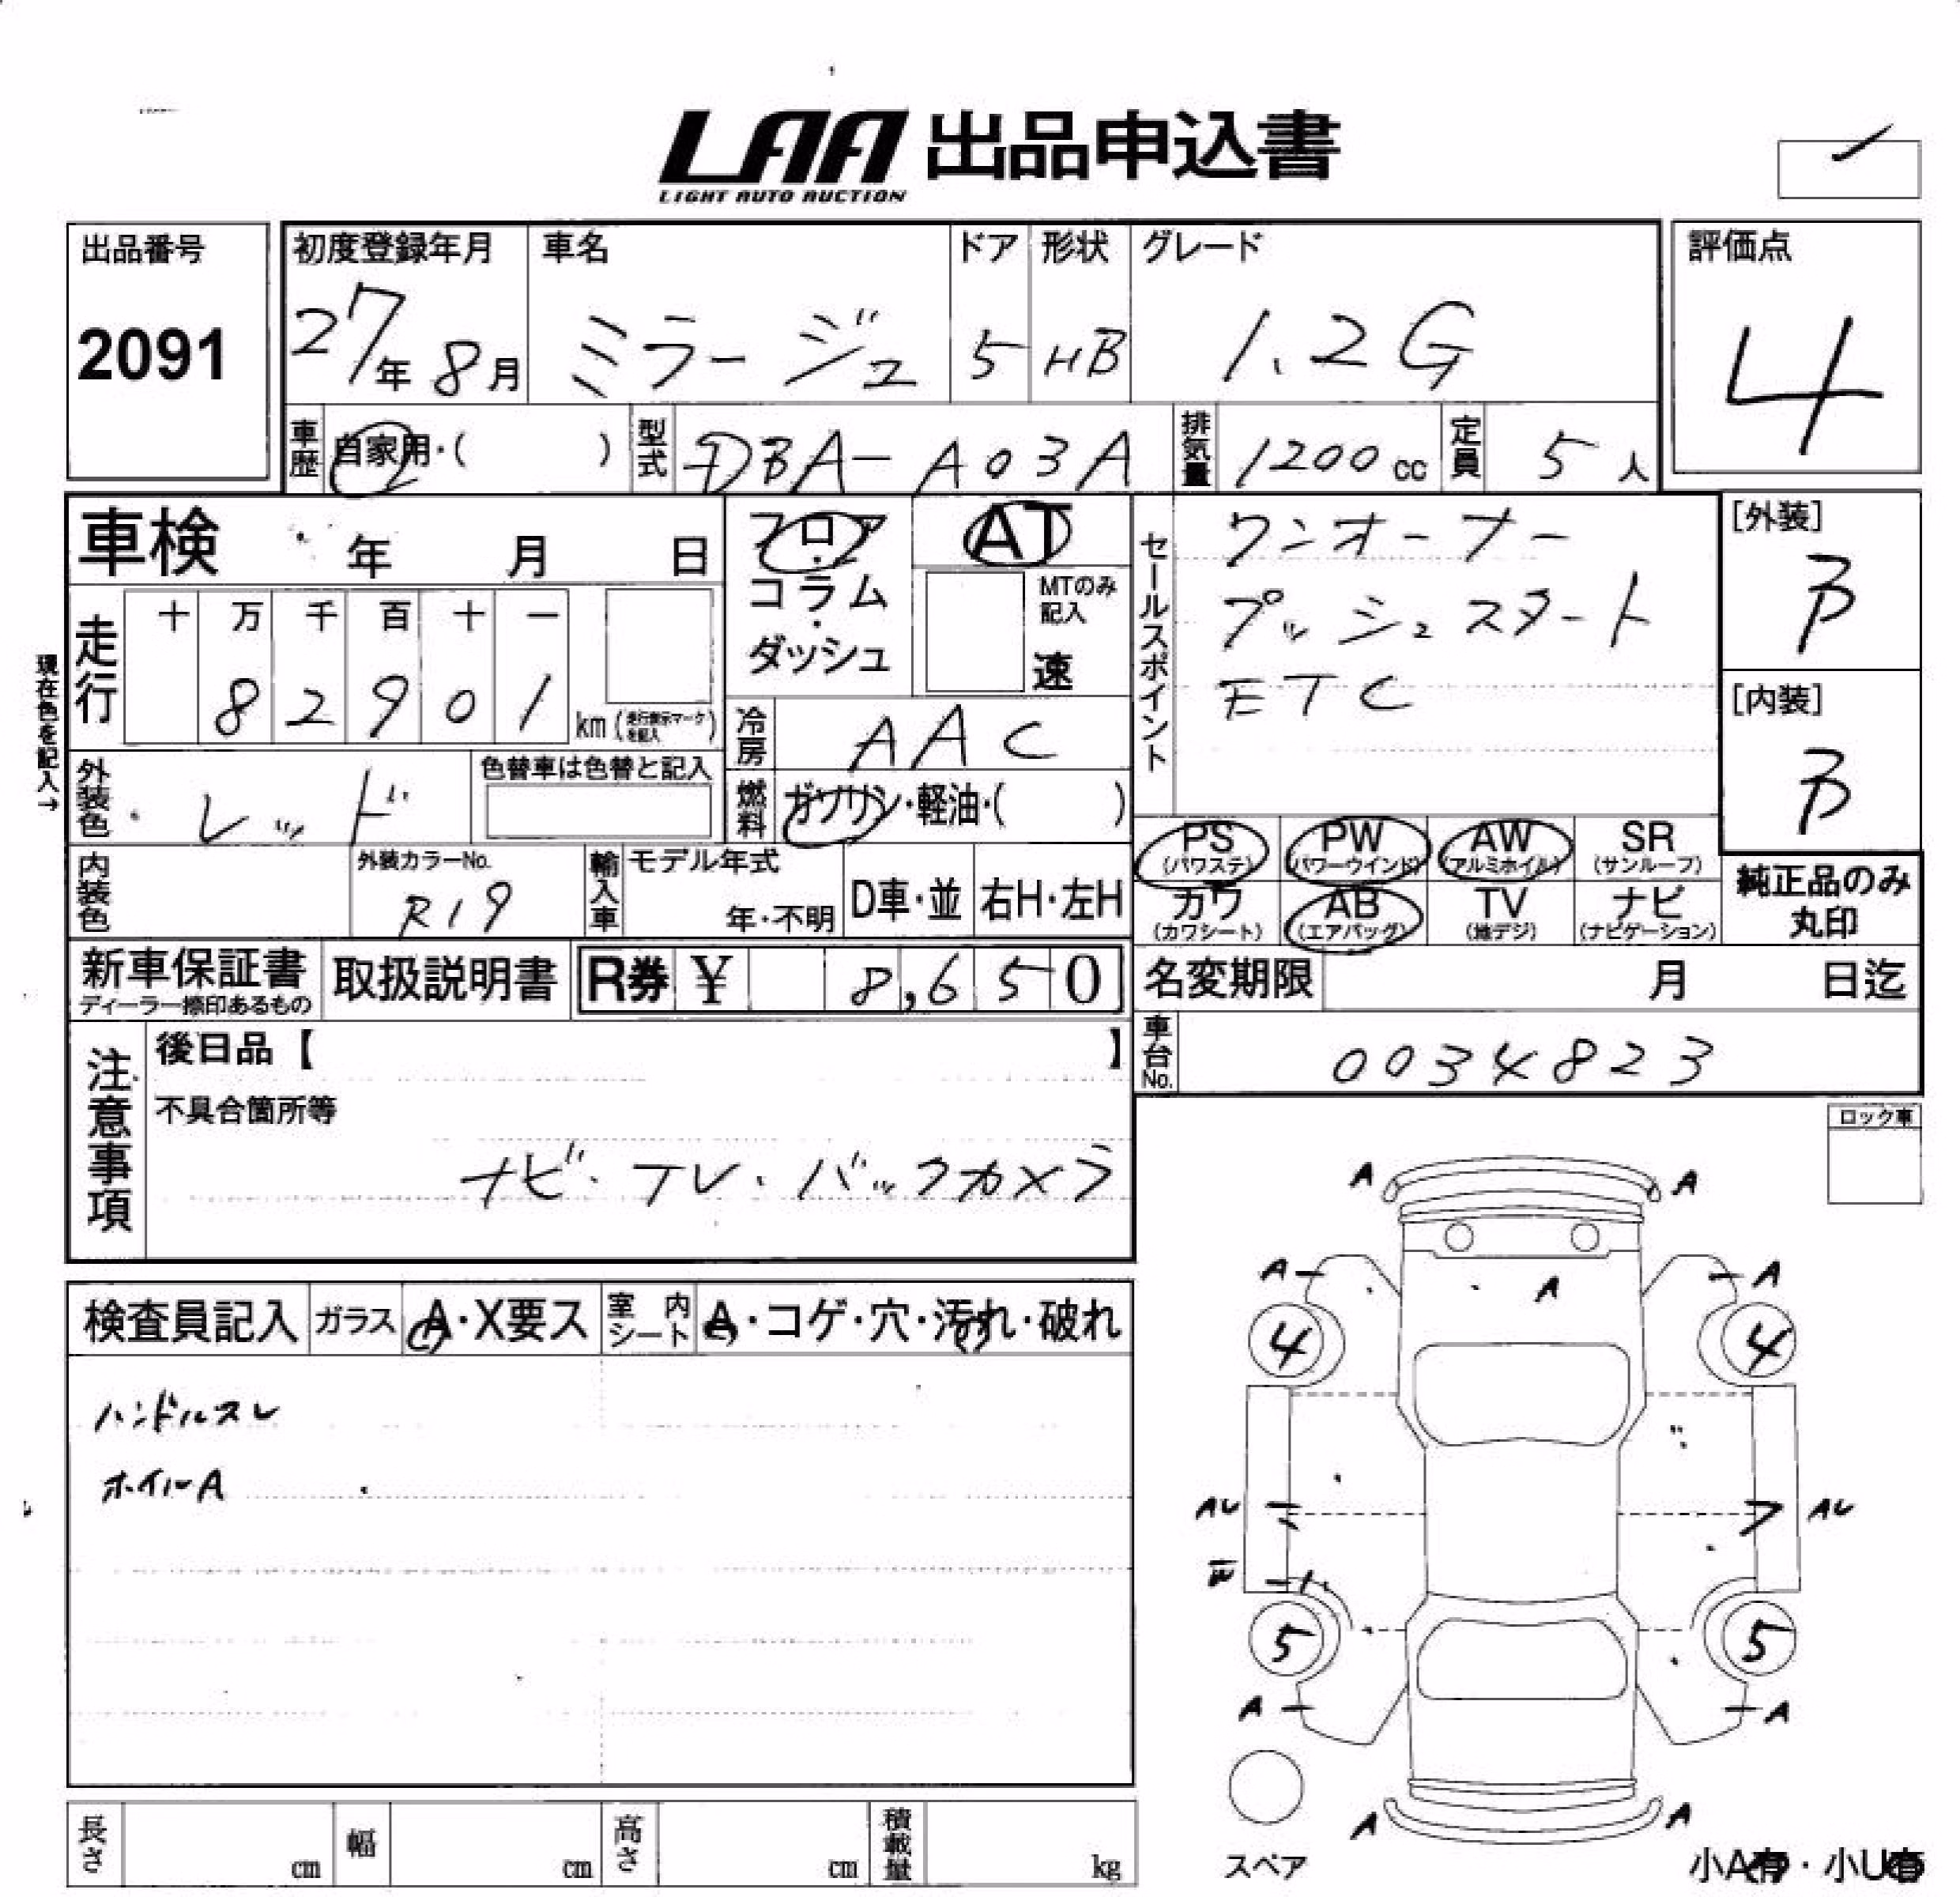 LAA 出品申込書
LIGHT AUTO AUCTION
出品番号
2091
初度登録年月
27年 8月
車名
ミラージュ
ドア
5
形状
HB
グレード
1.2G
評価点
4
車歴
自家用・( )
型式
DBA-A03A
排気量
1200cc
定員
5人
車検 年 月 日
フロア・コラム・ダッシュ
AT
MTのみ記入
速
セールスポイント
ワンオーナー
プッシュスタート
ETC
[外装]
B
[内装]
B
現在色を記入→
走行
十 万 千 百 十 一
8 2 9 0 1
km (走行表示マークを記入)
冷房
AAC
外装色
レッド
色替車は色替と記入
燃料
ガソリン・軽油・( )
PS (パワステ)
PW (パワーウインド)
AW (アルミホイル)
SR (サンルーフ)
カワ (カワシート)
AB (エアバッグ)
TV (地デジ)
ナビ (ナビゲーション)
純正品のみ
丸印
内装色
外装カラーNo.
R19
輸入車
モデル年式
年・不明
D車・並
右H・左H
新車保証書
ディーラー捺印あるもの
取扱説明書
R券 ¥ 8,650
名変期限 月 日迄
車台No.
0034823
注意事項
後日品【 】
不具合箇所等
ナビ・TV・バックカメラ
ロック車
検査員記入
ガラス
A・X要ス
室内シート
A・コゲ・穴・汚れ・破れ
ハンドルスレ
ホイルA
A A
A A A
4 4
AU AU
5 5
A A
A A
スペア
小A有・小U有
長さ cm
幅 cm
高さ cm
積載量 kg